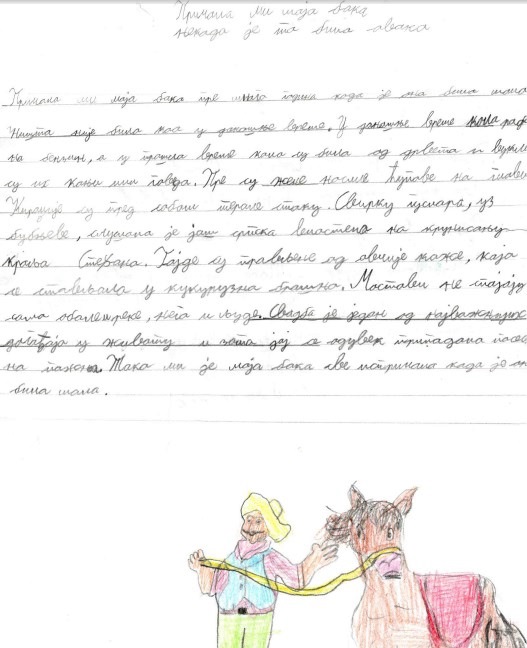 Причала ми моја бака
некада је та била
Причала ми моја бака пре много година када је она била мала
Ништа није била као у данашње време. У данашње време кола раде
на бензин, а у прошла време кола су била од дрвета и вукли
су их коњи или говеда. Пре су жене носиле на глави
су пред собом терале стоку. Свирку гусиара, уз
бубњеве, слушала је јаш српска властела на крунисању
Краља Стефана. Гајде су прављене од овчије коже, која
се стављала у кукурузна брашна. не
сама него и људе. Свадба је један од најважнијих
догађаја у животу и зота јој је одувек припадала
на пажња. Тако ми је моја бака све испричала када је
била мала.